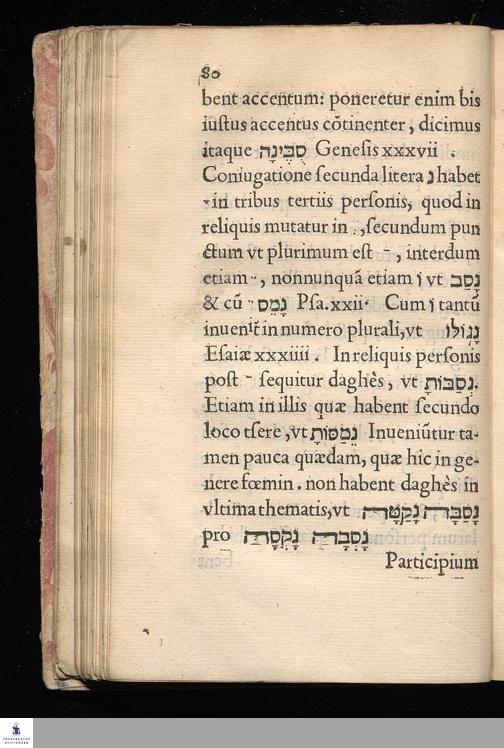 80
bent accentum: poneretur enim bis
iuſtus accentus cõtinenter, dicimus
itaque סֻבֶּינָה Geneſis xxxvii .
Coniugatione ſecunda litera נ habet
-in tribus tertiis perſonis, quod in
reliquis mutatur in ., ſecundum pun
ctum vt plurimum eſt -, interdum
etiam .., nonnunquã etiam ו vt נָסַב
& cũ .. נָמֵס Pſa. xxii. Cum ו tantũ
inuenit̃ in numero plurali, vt נָגוֹלוּ
Eſaiæ xxxiiii . In reliquis perſonis
poſt - ſequitur daghès, vt נְסַבּוֹתָ.
Etiam in illis quæ habent ſecundo
loco tſere, vt נְמַסּוֹתָ Inueniũtur ta-
men pauca quædam, quæ hic in ge-
nere fœmin. non habent daghès in
vltima thematis, vt נָסַבָּה נָקַטָּה
pro
Participium